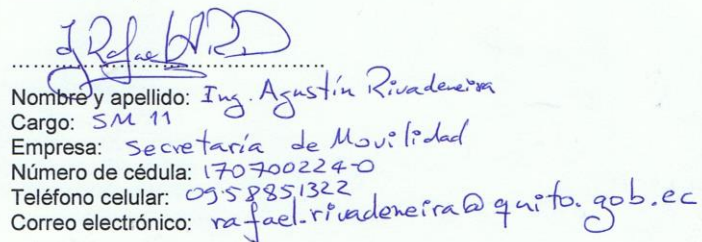 Nombre y apellido: Ing. Agustín Rivadeneira
Cargo: SM 11
Empresa: Secretaría de Movilidad
Número de cédula: 170700224-0
Teléfono celular: 0958851322
Correo electrónico: rafael.rivadeneira@quito.gob.ec